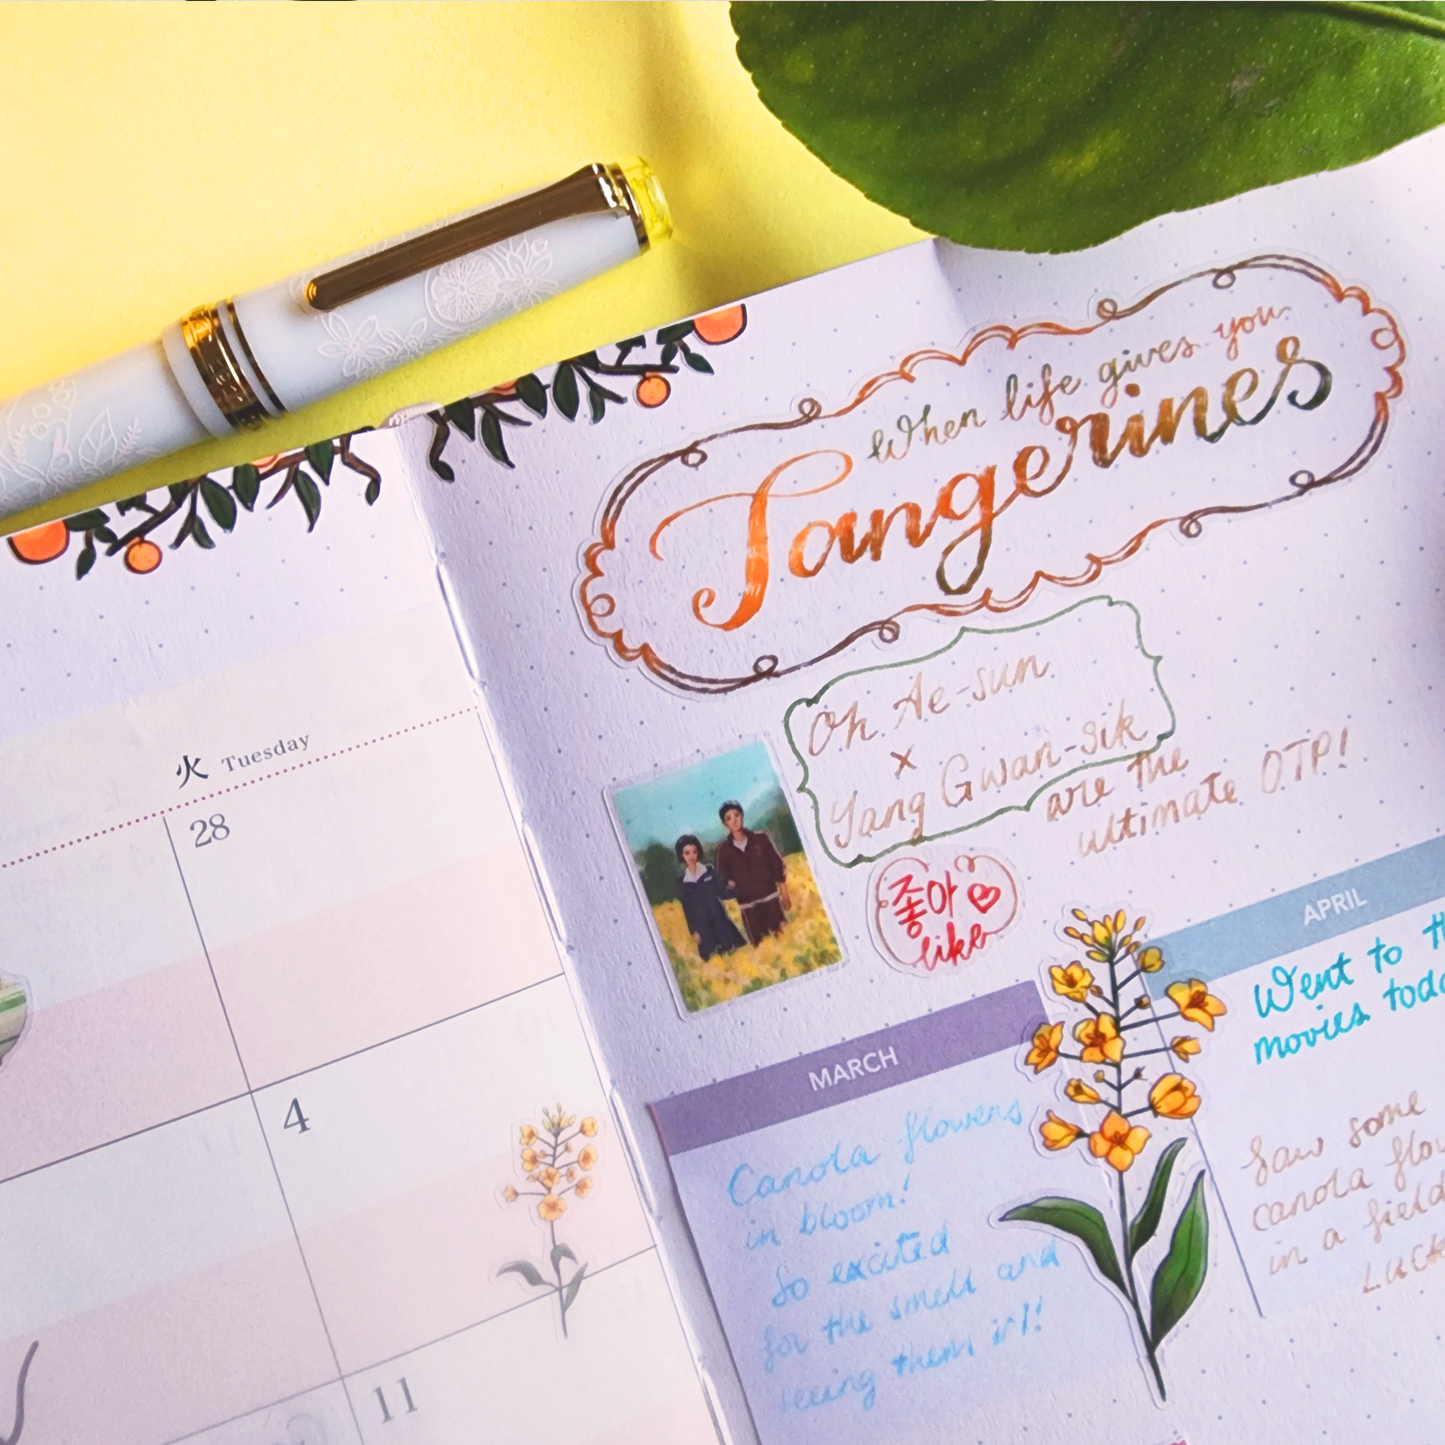 火 Tuesday
28
4
11
When life gives you
Tangerines
Oh Ae-sun
×
Yang Gwan-sik
are the
ultimate OTP!
좋아♡
like
MARCH
Canola flowers
in bloom!
So excited
for the smell and
seeing them irl!
APRIL
Went to
movies
Saw some
canola
in a field